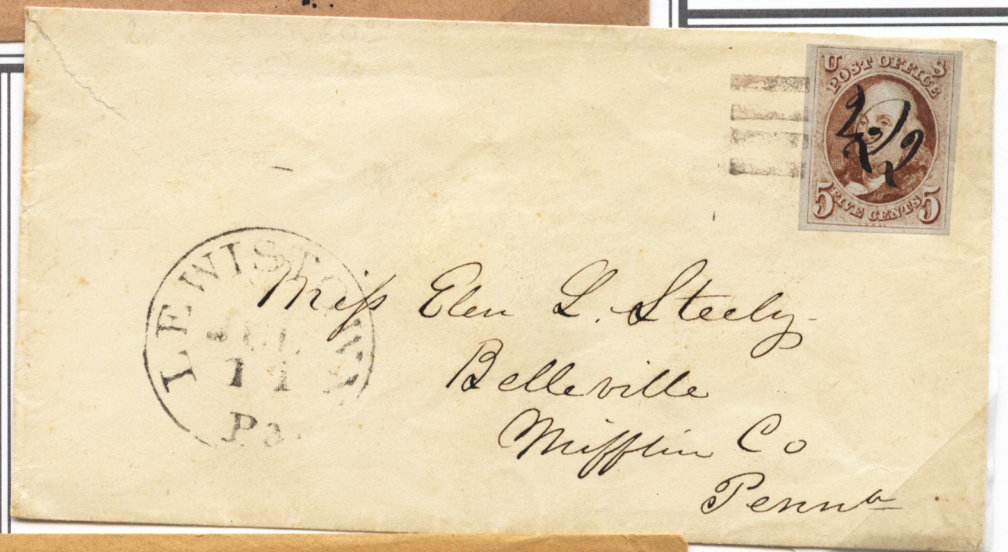 U S
POST OFFICE
5 FIVE CENTS 5
LEWISTOWN
JUL
11
Pa.
Miss Elen L. Steely
Belleville
Mifflin Co
Penna